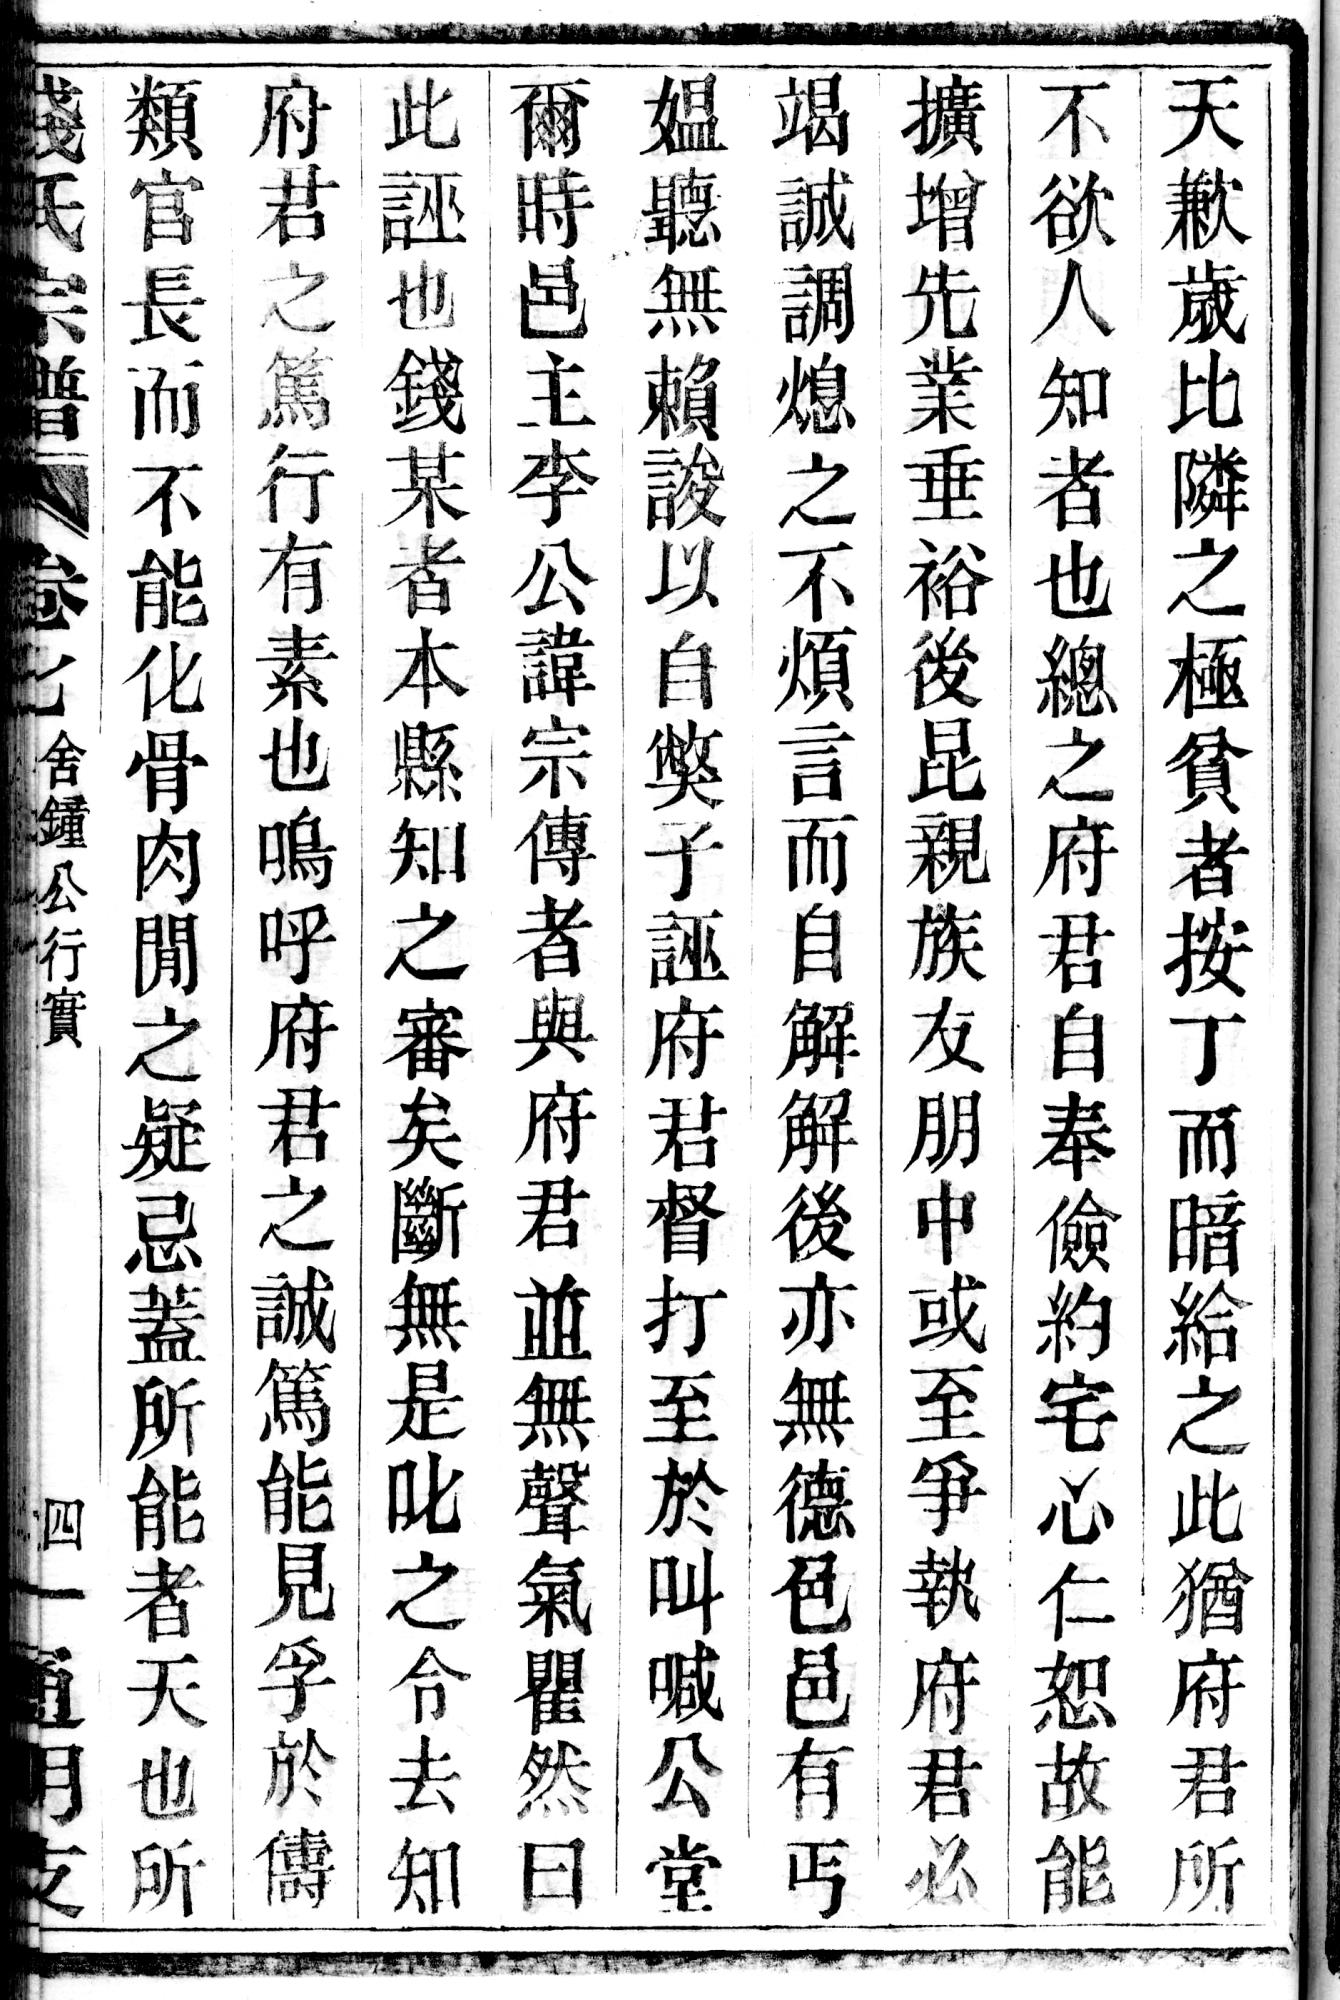 天歉歲比隣之極貧者按丁而暗給之此猶府君所
不欲人知者也總之府君自奉儉約宅心仁恕故能
擴增先業垂裕後昆親族友朋中或至爭執府君必
竭誠調熄之不煩言而自解解後亦無德色邑有丐
媼聽無賴誜以自斃子誣府君督打至於叫喊公堂
爾時邑主李公諱宗傳者與府君並無聲氣瞿然曰
此誣也錢某者本縣知之審矣斷無是叱之令去知
府君之篤行有素也嗚呼府君之誠篤能見孚於儔
類官長而不能化骨肉閒之疑忌蓋所能者天也所
錢氏宗譜 卷七 舍鐘公行實 四一 通明支